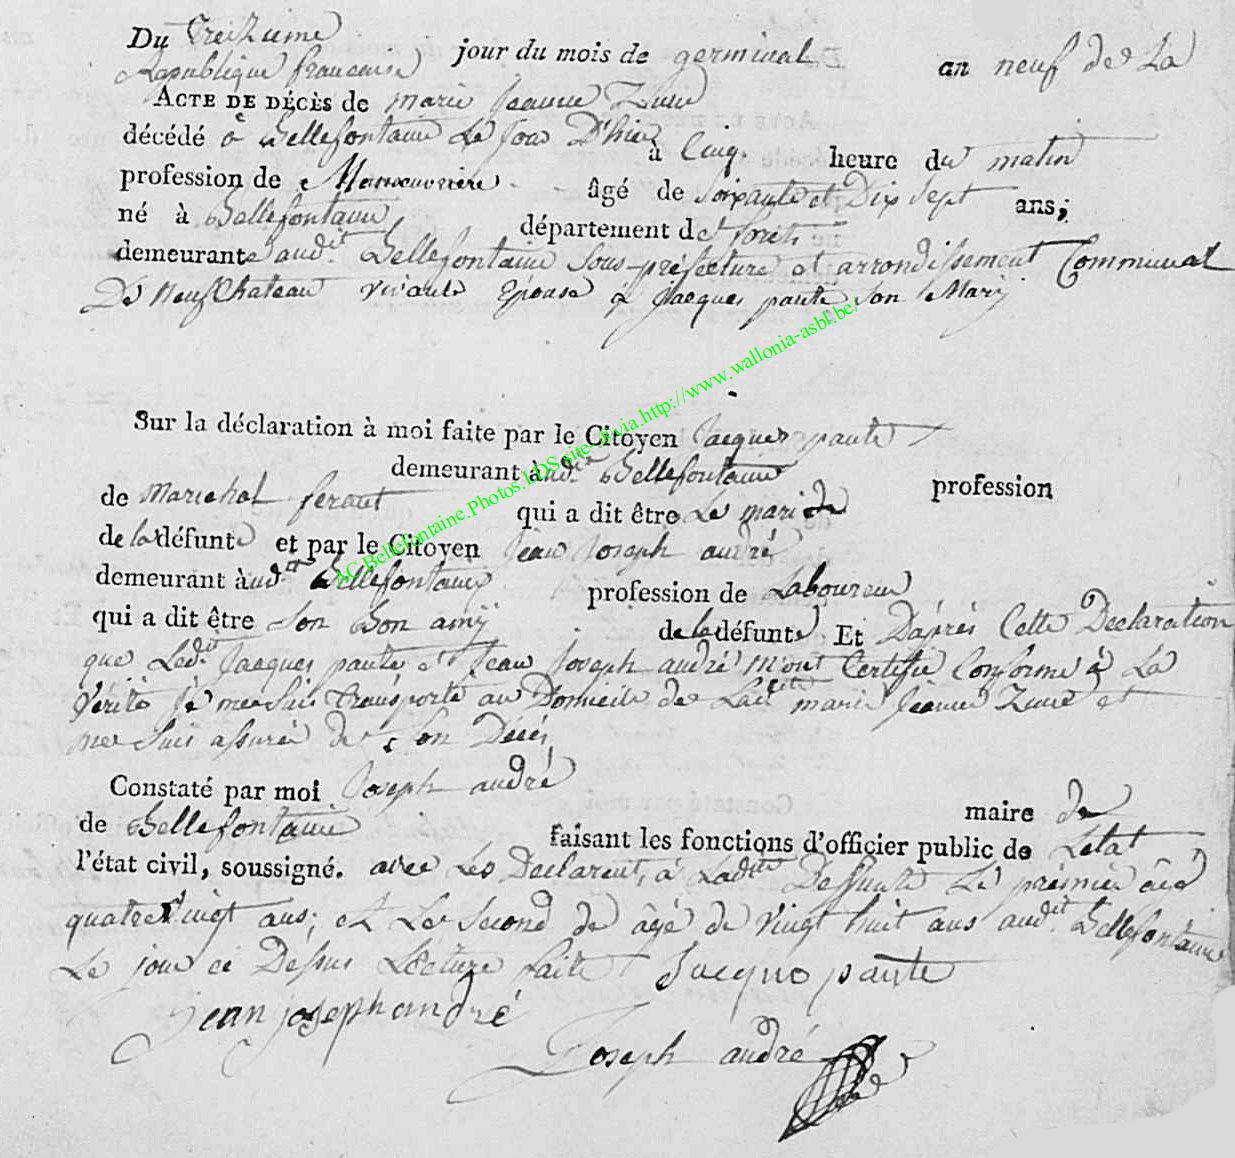 Du treizieme jour du mois de germinal an neuf de La
Republique francaise
ACTE DE DÉCÈS de marie Jeanne
décédé a Bellefontaine Le Jour D'hier à Cinq heure du matin
profession de Manoeuvriere âgé de Soixante et Dix Sept ans;
né à Bellefontaine département de forets
demeurante audit Bellefontaine Sous-préfecture et arrondissement Communal
De Neufchateau vivante Epouse a Jacques paute Son Mary
Sur la déclaration à moi faite par le Citoyen Jacques paute
demeurant àudit Bellefontaine profession
de Marechal ferant qui a dit être Le mari de
de la défunte et par le Citoyen Jean Joseph andré
demeurant àudit Bellefontaine profession de Laboureur
qui a dit être Son Bon amÿ de la défunte Et D'aprés Cette Declaration
que Ledit Jacques paute et Jean Joseph andré m'ont Certifie Conforme à La
vérité Je me suis transporté au Domicile de Ladite marie Jeanne et
me suis assuré de Son Décés
Constaté par moi Joseph andré maire de
de Bellefontaine faisant les fonctions d'officier public de Letat
l'état civil, soussigné. avec Les Declarent, a Ladite Deffunte Le premier agé
quatre Vingt ans; et Le Second de âgé de Vingt huit ans audit Bellefontaine
Le jour ci Dessus Lecture faite Jacque paute
jean joseph andré
Joseph andré
AC.Bellefontaine.Photos.LDS via.http://www.wallonia-asbl.be/